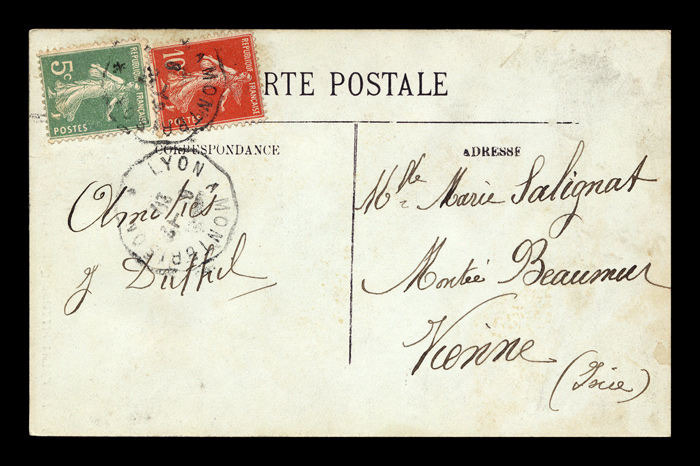 5c
REPUBLIQUE FRANÇAISE
POSTES
10c
REPUBLIQUE FRANÇAISE
POSTES
RTE POSTALE
CORRESPONDANCE
ADRESSE
LYON A MONTBRISON
Amitiés
J Duthil
Mlle Marie Salignat
Montée Beaumur
Vienne
(Isère)